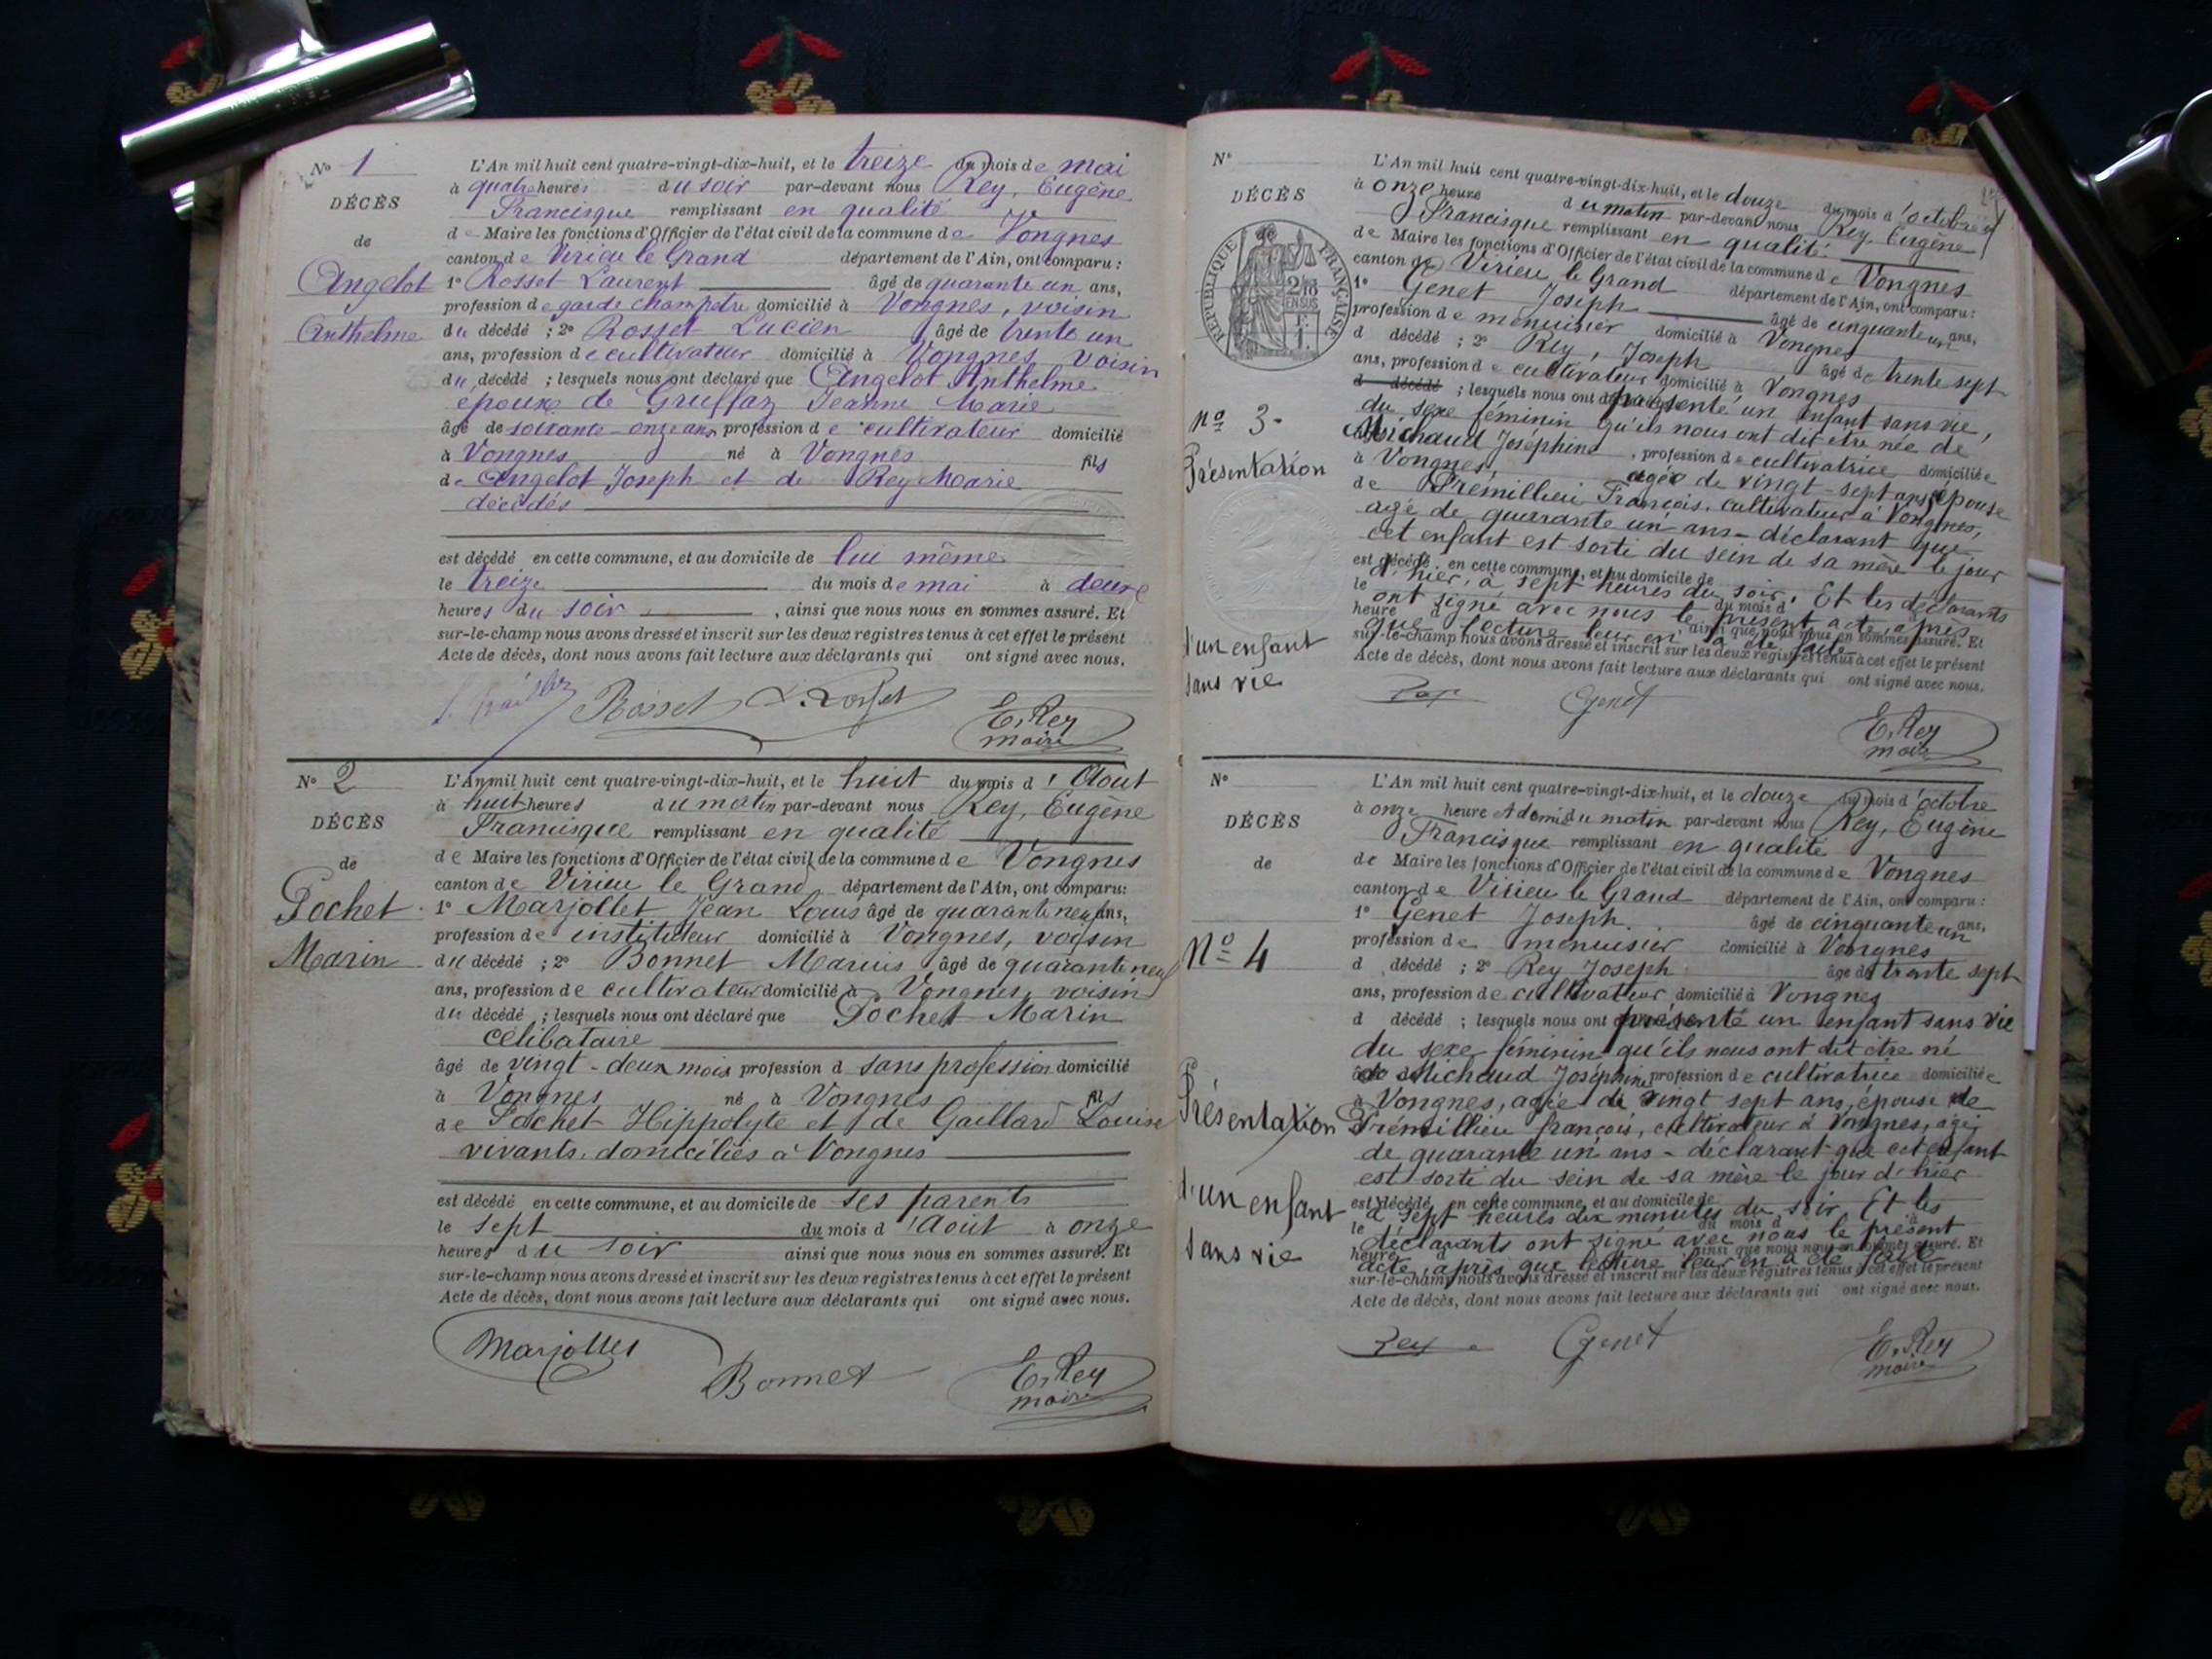 N° 1
DÉCÈS
de
Angelot
Anthelme
L'An mil huit cent quatre-vingt-dix-huit, et le treize du mois de mai
à quatre heures du soir par-devant nous Rey, Eugène
Francisque remplissant en qualité
de Maire les fonctions d'Officier de l'état civil de la commune de Vongnes
canton de Virieu le Grand département de l'Ain, ont comparu :
1° Rosset Laurent âgé de quarante un ans,
profession de garde champêtre domicilié à Vongnes, voisin
du décédé ; 2° Rosset Lucien âgé de trente un
ans, profession de cultivateur domicilié à Vongnes voisin
du décédé ; lesquels nous ont déclaré que Angelot Anthelme
époux de Gruffaz Jeanne Marie
âgé de soixante-onze ans profession de cultivateur domicilié
à Vongnes né à Vongnes fils
de Angelot Joseph et de Rey Marie
décédés
est décédé en cette commune, et au domicile de lui même
le treize du mois de mai à deux
heures du soir, ainsi que nous nous en sommes assuré. Et
sur-le-champ nous avons dressé et inscrit sur les deux registres tenus à cet effet le présent
Acte de décès, dont nous avons fait lecture aux déclarants qui ont signé avec nous.
Rosset L. Rosset
E. Rey
maire
N° 2
DÉCÈS
de
Pochet
Marin
L'An mil huit cent quatre-vingt-dix-huit, et le huit du mois d'Aout
à huit heures du matin par-devant nous Rey, Eugène
Francisque remplissant en qualité
de Maire les fonctions d'Officier de l'état civil de la commune de Vongnes
canton de Virieu le Grand, département de l'Ain, ont comparu :
1° Marjollet Jean Louis âgé de quarante neuf ans,
profession de instituteur domicilié à Vongnes, voisin
du décédé ; 2° Bonnet Marius âgé de quarante neuf
ans, profession de cultivateur domicilié à Vongnes, voisin
du décédé ; lesquels nous ont déclaré que Pochet Marin
célibataire
âgé de vingt-deux mois profession d sans profession domicilié
à Vongnes né à Vongnes fils
de Pochet Hippolyte et de Gaillard Louise
vivants, domiciliés à Vongnes
est décédé en cette commune, et au domicile de ses parents
le sept du mois d'Août à onze
heures du soir ainsi que nous nous en sommes assuré. Et
sur-le-champ nous avons dressé et inscrit sur les deux registres tenus à cet effet le présent
Acte de décès, dont nous avons fait lecture aux déclarants qui ont signé avec nous.
Marjollet
Bonnet
E. Rey
maire
N°
DÉCÈS
de
RÉPUBLIQUE FRANÇAISE
2/10
EN SUS
N° 3
Présentation
d'un enfant
sans vie
L'An mil huit cent quatre-vingt-dix-huit, et le douze du mois d'octobre
à onze heure du matin par-devant nous Rey, Eugène
Francisque remplissant en qualité
de Maire les fonctions d'Officier de l'état civil de la commune de Vongnes
canton de Virieu le Grand département de l'Ain, ont comparu :
1° Genet Joseph âgé de cinquante un ans,
profession de menuisier domicilié à Vongnes
d décédé ; 2° Rey, Joseph âgé de trente sept
ans, profession de cultivateur domicilié à Vongnes
d décédé ; lesquels nous ont présenté un enfant sans vie,
du sexe féminin qu'ils nous ont dit être née de
Michaud Joséphine, profession de cultivatrice domiciliée
à Vongnes, agée de vingt-sept ans épouse
de Prémillieu François, cultivateur à Vongnes,
agé de quarante un ans - déclarant que
cet enfant est sorti du sein de sa mère le jour
est décédé en cette commune, et au domicile de
d'hier, à sept heures du soir. Et les déclarants
le du mois d
ont signé avec nous le présent acte, après
heure d ainsi que nous nous en sommes assuré. Et
que lecture leur en a été faite
sur-le-champ nous avons dressé et inscrit sur les deux registres tenus à cet effet le présent
Acte de décès, dont nous avons fait lecture aux déclarants qui ont signé avec nous.
Rey Genet
E. Rey
maire
N°
DÉCÈS
de
N° 4
Présentation
d'un enfant
sans vie
L'An mil huit cent quatre-vingt-dix-huit, et le douze du mois d'octobre
à onze heure et demi du matin par-devant nous Rey, Eugène
Francisque remplissant en qualité
de Maire les fonctions d'Officier de l'état civil de la commune de Vongnes
canton de Virieu le Grand département de l'Ain, ont comparu :
1° Genet Joseph. âgé de cinquante un ans,
profession de menuisier domicilié à Vongnes
d décédé ; 2° Rey Joseph âgé de trente sept
ans, profession de cultivateur domicilié à Vongnes
d décédé ; lesquels nous ont présenté un enfant sans vie
du sexe féminin qu'ils nous ont dit être né
de Michaud Joséphine, profession de cultivatrice domiciliée
à Vongnes, agée de vingt sept ans, épouse de
Prémillieu françois, cultivateur à Vongnes, agé
de quarante un ans - déclarant que cet enfant
est sorti du sein de sa mère le jour d'hier
est décédé en cette commune, et au domicile de
à sept heures dix minutes du soir. Et les
le du mois d à
déclarants ont signé avec nous le présent
heure d ainsi que nous nous en sommes assuré. Et
acte, après que lecture leur en a été faite
sur-le-champ nous avons dressé et inscrit sur les deux registres tenus à cet effet le présent
Acte de décès, dont nous avons fait lecture aux déclarants qui ont signé avec nous.
Rey Genet
E. Rey
maire